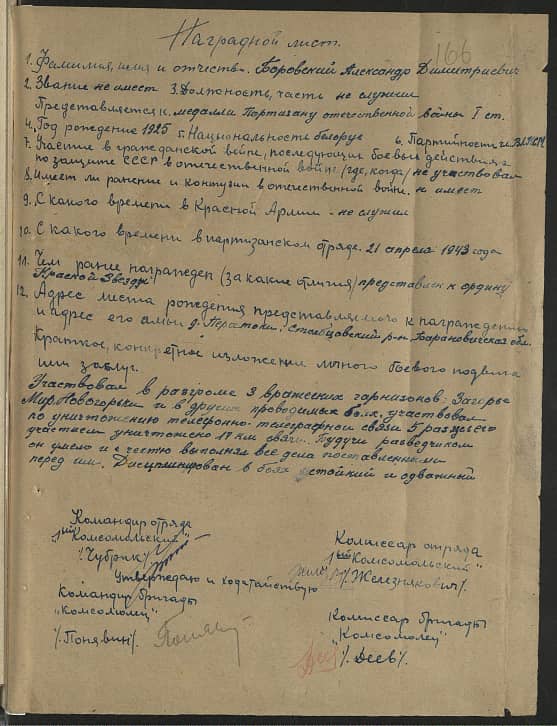 166
Наградной лист.
1. Фамилия, имя и отчество. Боровский Александр Димитриевич
2. Звание не имеет 3. Должность, часть не служил
Представляется к медалли Партизану отечественной войны I ст.
4. Год рождение 1925 г. Национальность белорус 6. Партийность чл. ВЛКСМ
7. Участие в гражданской войне, последующих боевых действиях
по защите СССР в отечественной войне (где, когда) не участвовал
8. Имеет ли ранение и контузии в отечественной войне. не имеет
9. С какого времени в Красной Армии - не служил
10. С какого времени в партизанском отряде. 21 апреля 1943 года
11. Чем ранее награжден (за какие отличия) представлен к ордину
Красной Звезды
12. Адрес места рождения представляемого к награждению
и адрес его семьи д. Столбцовский р-н Барановичская обл.
Краткое, конкретное изложении личного боевого подвига
или заслуг.
Участвовал в разгроме 3 вражеских гарнизонов: Загорье
Мир, и в других проводимых боях, участвовал
по уничтожению телефонно-телеграфной связи 5 раз, его
участием уничтожено 17 км связи. Будучи разведчиком
он умело и с честью выполнял все дела поставленными
перед им. Дисциплинирован в боях стойкий и одважный
Командир отряда
"Комсомольский"
/Чубрик/
Комиссар отряда
"Комсомольский"
/Железнякович/.
Утверждаю и ходатайствую
Командир бригады
"Комсомолец"
/Понявин/.
Комиссар бригады
"Комсомолец"
/Деев/.